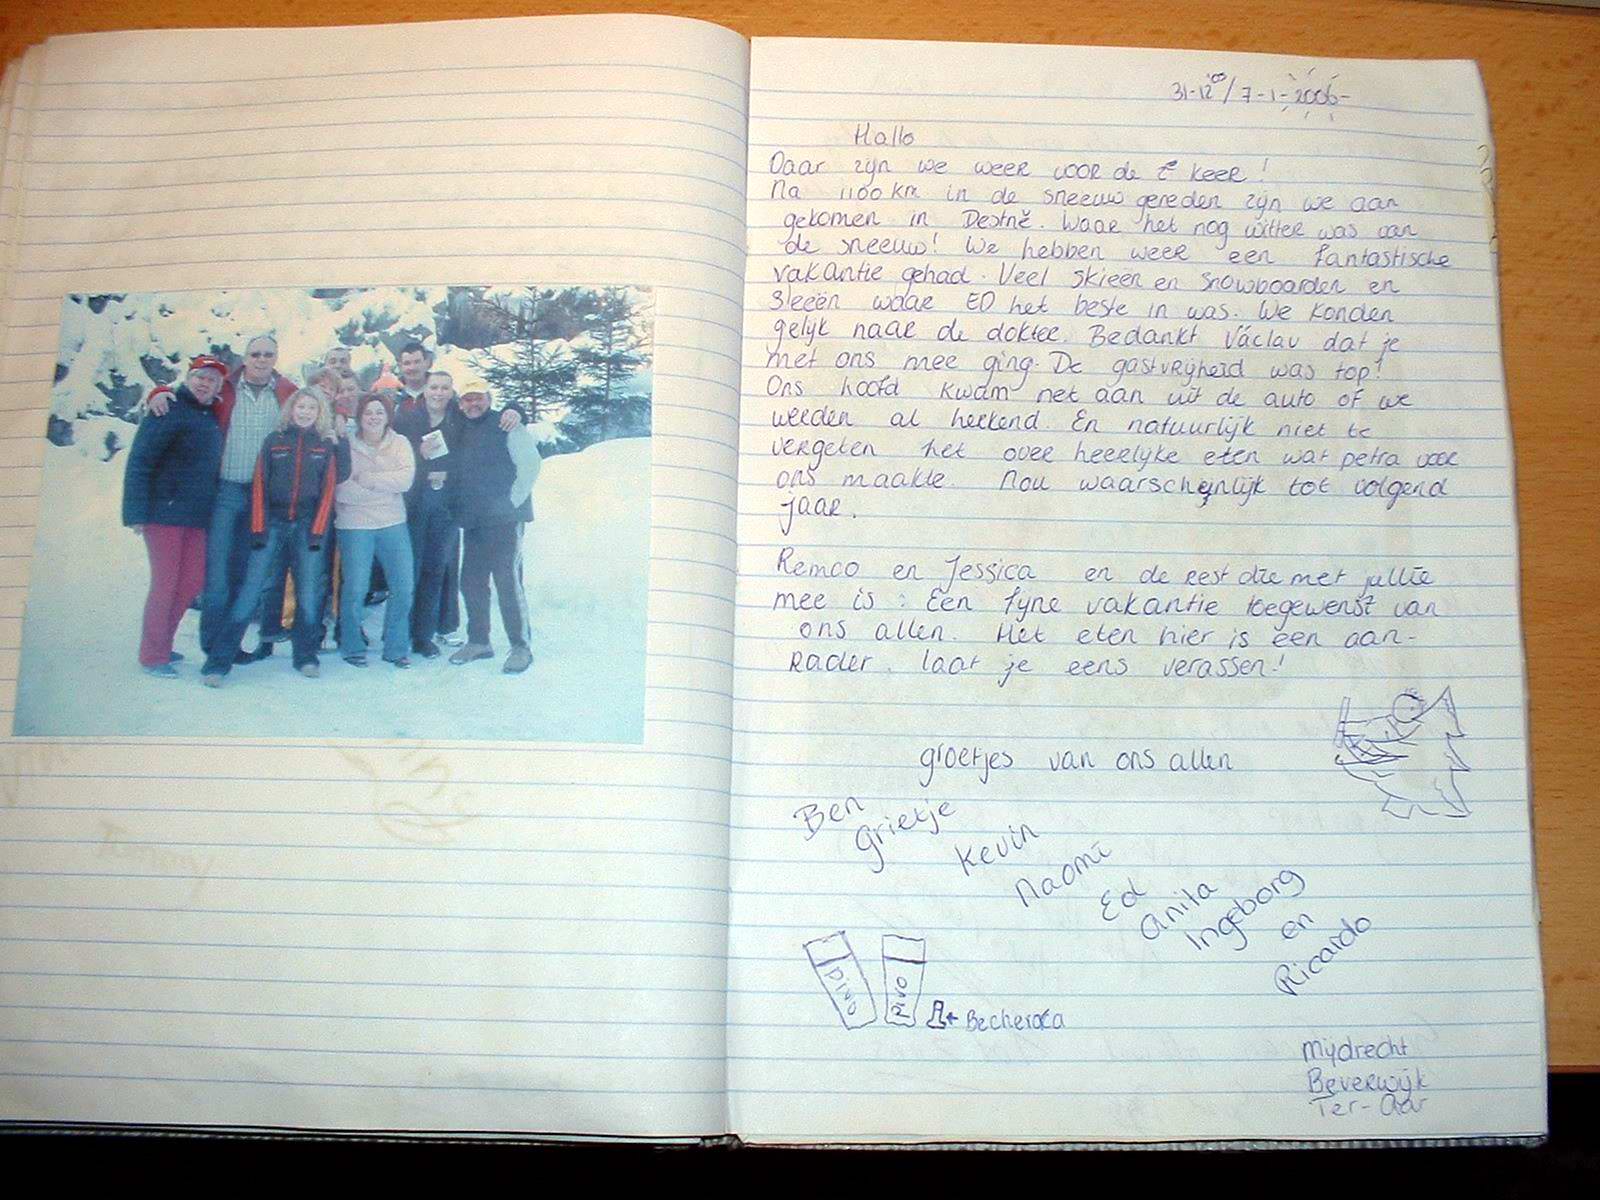 31-12 / 7-1-2006-
Hallo
Daar zijn we weer voor de keer!
Na 1100 km in de sneeuw gereden zijn we aan
gekomen in Destné. Waar het nog witter was van
de sneeuw! We hebben weer een fantastische
vakantie gehad. Veel skieen en snowboarden en
sleeën waar ED het beste in was. We konden
gelijk naar de dokter. Bedankt Václav dat je
met ons mee ging. De gastvrijheid was top!
Ons hoofd kwam net aan uit de auto of we
werden al herkend. En natuurlijk niet te
vergeten het over heerlijke eten wat petra voor
ons maakte. Nou waarschijnlijk tot volgend
jaar.
Remco en Jessica en de rest die met jullie
mee is: Een fijne vakantie toegewenst van
ons allen. Het eten hier is een aan-
Rader. laat je eens verassen!
groetjes van ons allen
Ben
Grietje
Kevin
Naomi
Ed
Anita
Ingeborg
en
Ricardo
pivo
pivo
Mijdrecht
Beverwijk
Ter-Aar